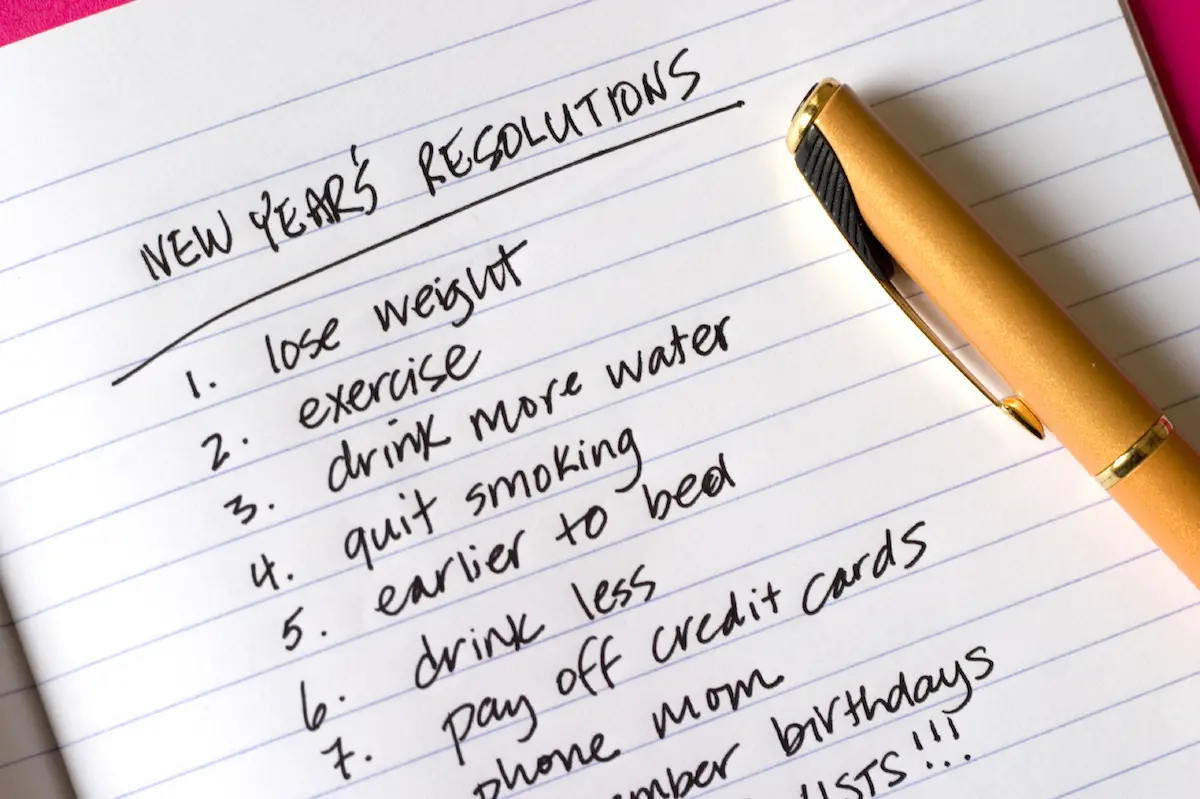 NEW YEAR'S RESOLUTIONS
1. lose weight
2. exercise
3. drink more water
4. quit smoking
5. earlier to bed
6. drink less
7. pay off credit cards
phone mom
ember birthdays
LISTS!!!